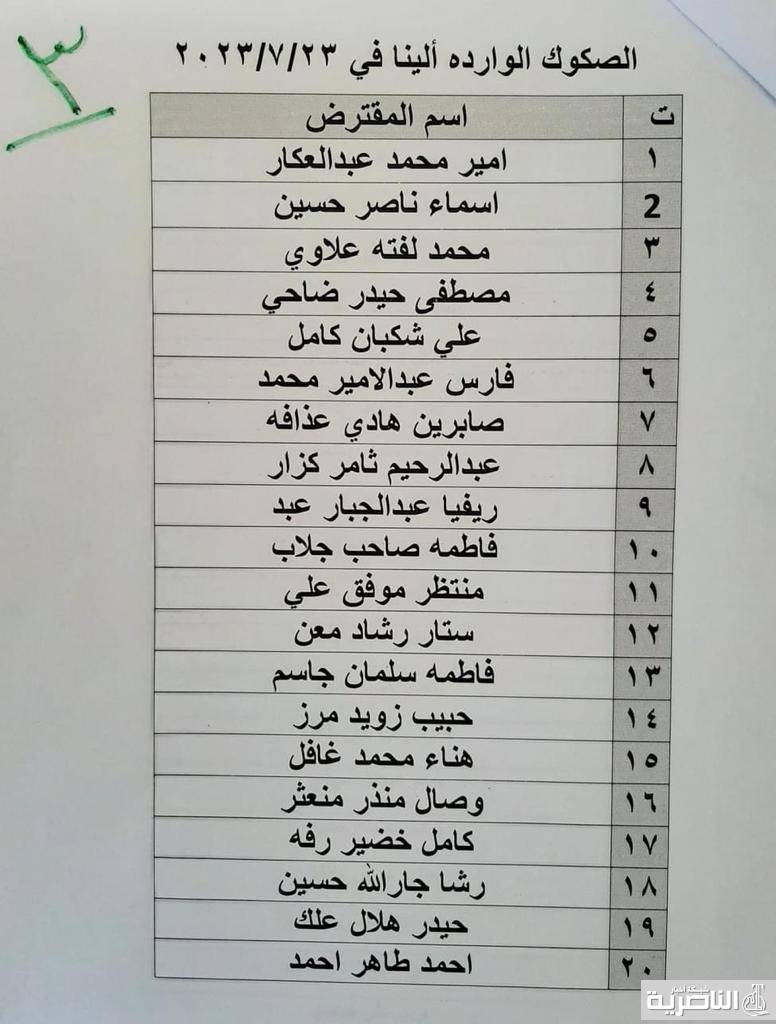 ٣
الصكوك الوارده ألينا في ٢٠٢٣/٧/٢٣
ت اسم المقترض
١ امير محمد عبدالعكار
2 اسماء ناصر حسين
٣ محمد لفته علاوي
٤ مصطفى حيدر ضاحي
٥ علي شكبان كامل
٦ فارس عبدالامير محمد
٧ صابرين هادي عذافه
٨ عبدالرحيم ثامر كزار
٩ ريفيا عبدالجبار عبد
١٠ فاطمه صاحب جلاب
١١ منتظر موفق علي
١٢ ستار رشاد معن
١٣ فاطمه سلمان جاسم
١٤ حبيب زويد مرز
١٥ هناء محمد غافل
١٦ وصال منذر منعثر
١٧ كامل خضير رفه
١٨ رشا جارالله حسين
١٩ حيدر هلال علك
٢٠ احمد طاهر احمد
شبكة أخبار
الناصرية